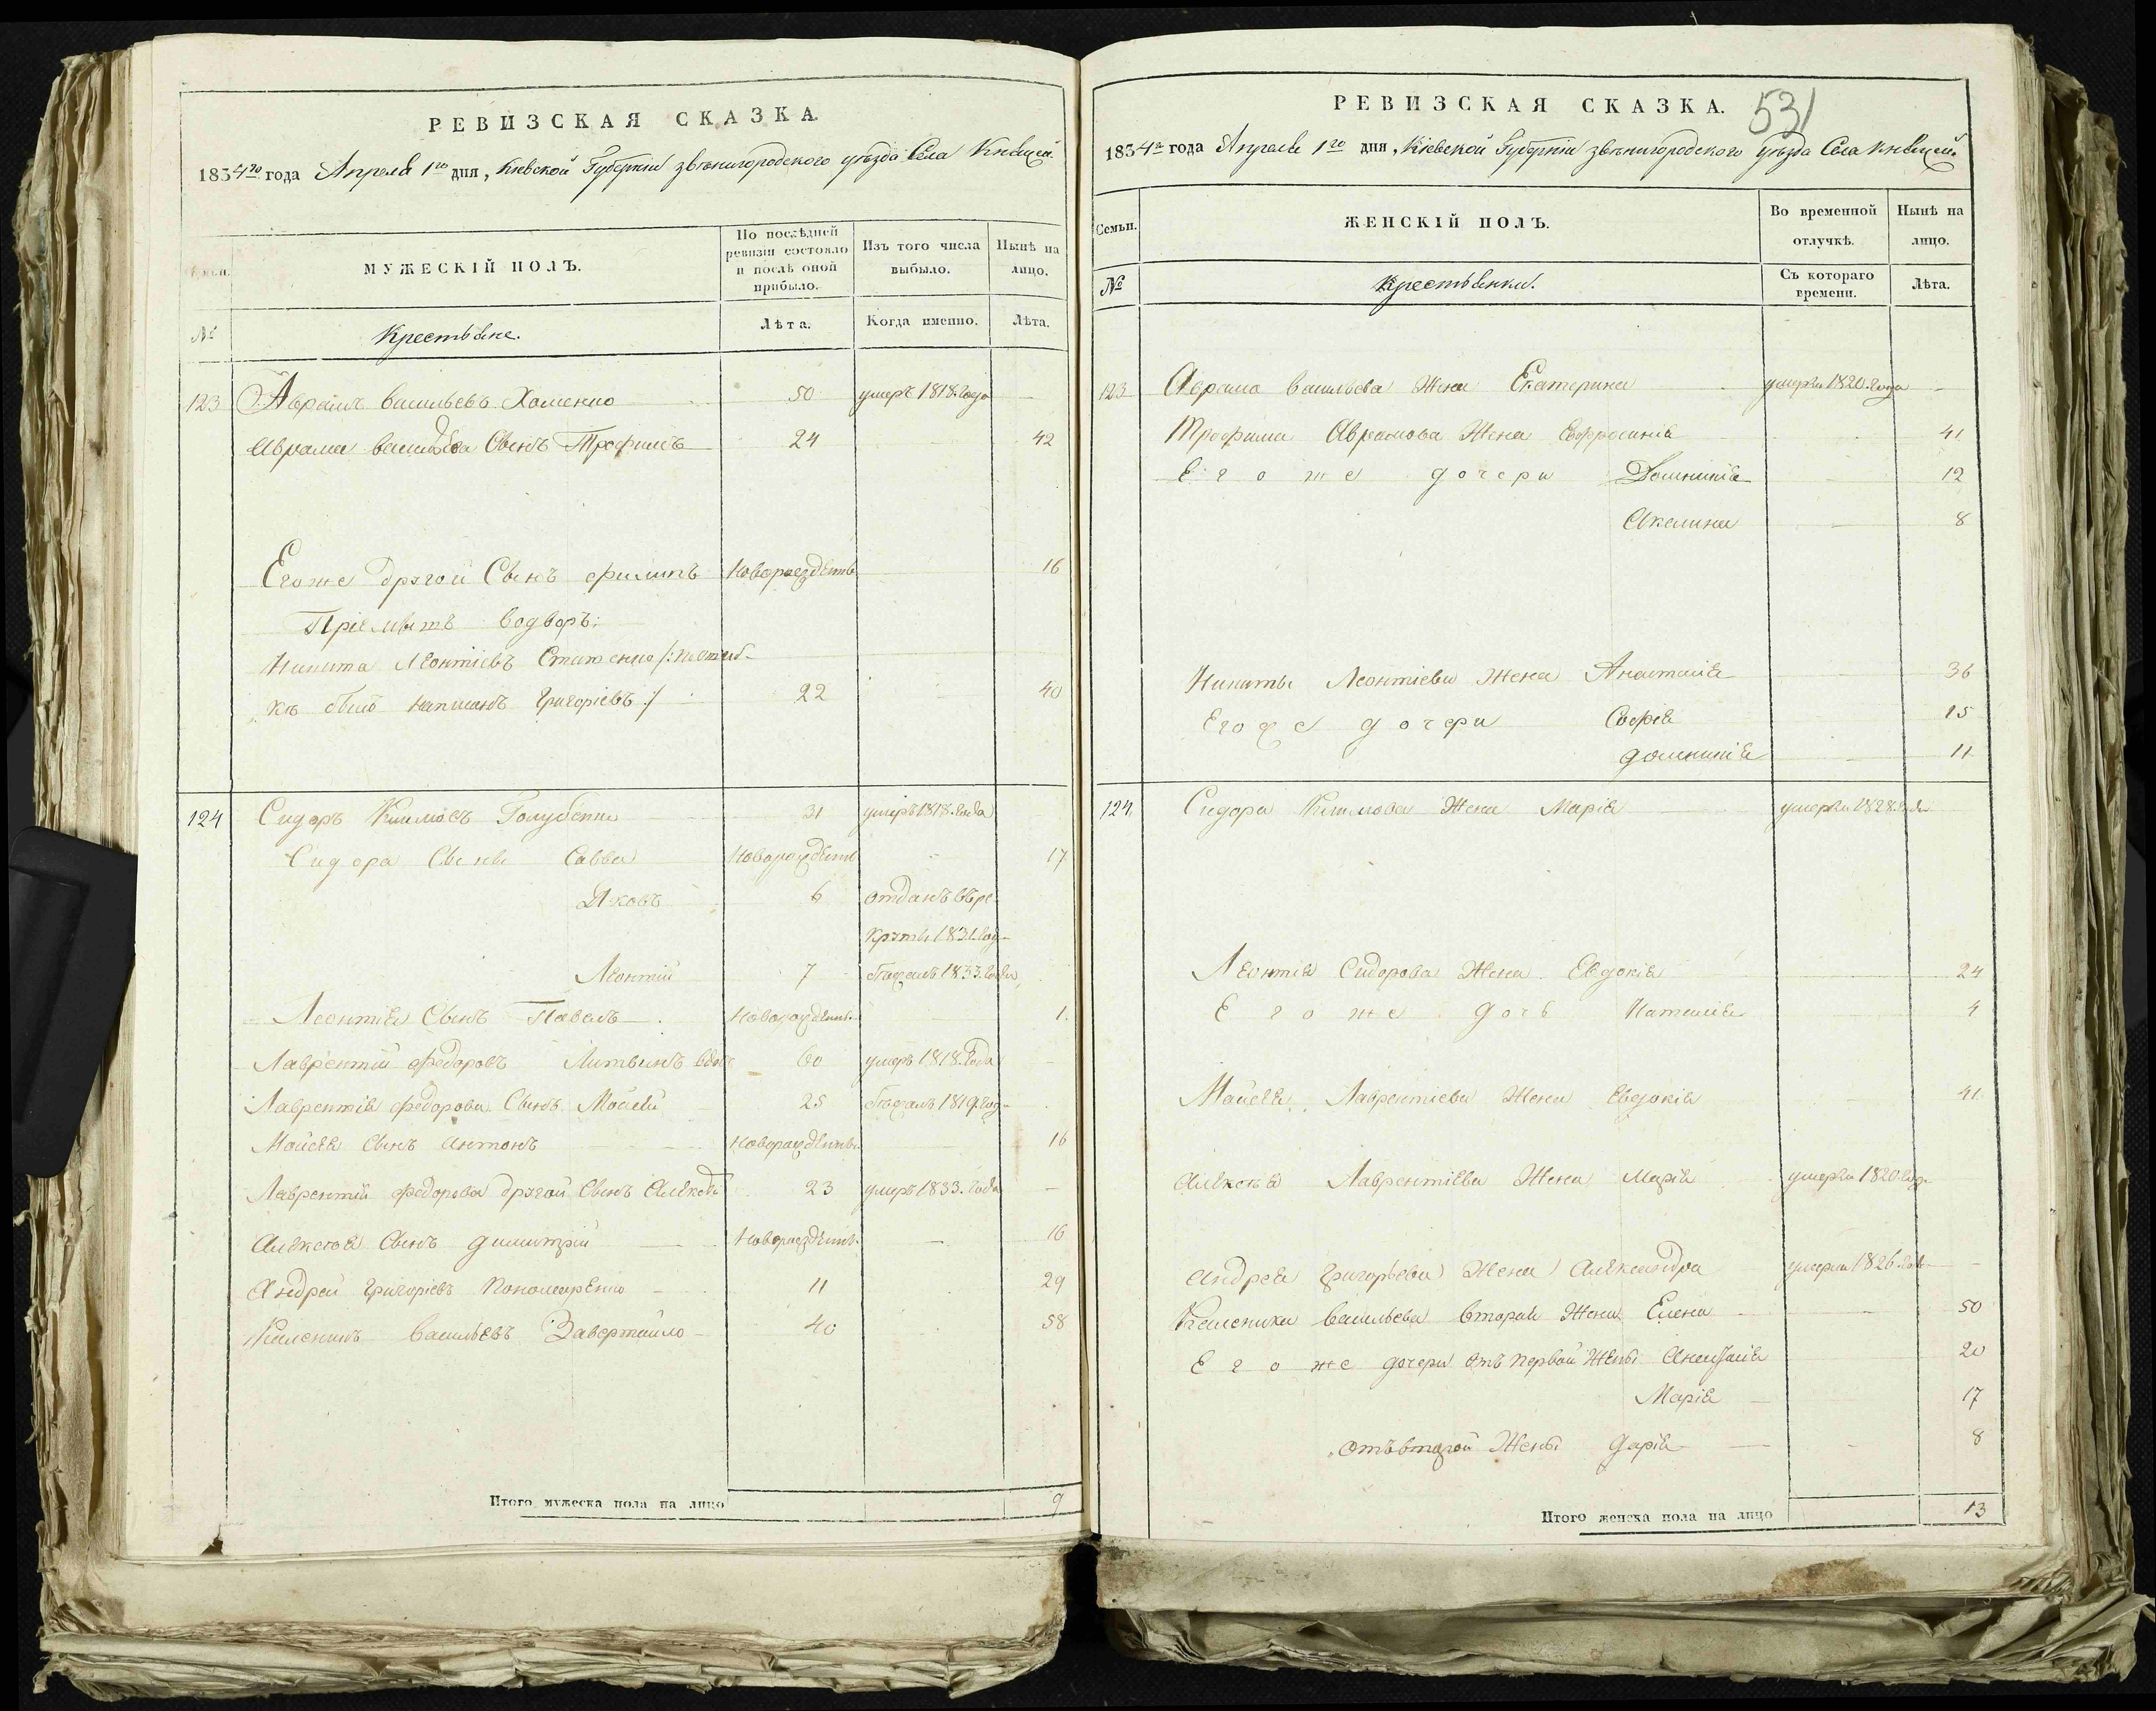 РЕВИЗСКАЯ СКАЗКА.
1834го года Апреля 1го дня, Киевской Губернии звенигородского уезда Села Княжей
Семьи.
МУЖЕСКІЙ ПОЛЪ.
По послѣдней ревизіи состояло и послѣ оной прибыло.
Изъ того числа выбыло.
Нынѣ на лицо.
№
Крестьяне.
Лѣта.
Когда именно.
Лѣта.
123 Аврамъ васильевъ Хоменко 50 умеръ 1818. года —
Аврама васильева Сынъ Трофимъ 24 42
Егоже другой Сынъ филипъ Новорожденъ 16
Пріемытъ
Никита Леонтіевъ
къ былъ написанъ Григоріевъ :/ 22 40
124 Сидоръ Климовъ Голубенко 31 умеръ 1818. года
Сидора Сыны Савва Новорожденъ 17
Яковъ 6 отданъ въ ре-
круты 1831. год
Леонтій 7 бѣжалъ 1833. года
Леонтія Сынъ Павелъ Новорожден. 1.
Лаврентій федоровъ Литвинъ 60 умеръ 1818. года —
Лаврентія федорова Сынъ Мойсей 25 бѣжалъ 1819. год
Мойсея Сынъ Антонъ Новорожденъ. 16
Лаврентія федорова другой Сынъ Алексей 23 умеръ 1833. года —
Алексея Сынъ димитрій Новорожден. — 16
Андрей Григоріевъ Пономаренко 11 29
Каленикъ васильевъ Завертайло 40 58
Итого мужеска пола на лицо 9
РЕВИЗСКАЯ СКАЗКА. 531
1834го года Апреля 1го дня, Киевской Губернии звенигородского уезда Села Княжей.
Семьи.
ЖЕНСКІЙ ПОЛЪ.
Во временной отлучкѣ.
Нынѣ на лицо.
№
Крестьянки.
Съ котораго времени.
Лѣта.
123 Аврама васильева Жена Екатерина умерла 1820. года —
Трофима Аврамова Жена Евфросинія 41
Егоже дочери Домникія 12
Акелина 8
Никиты Леонтіева Жена Анастасія 36
Егоже дочери Софія 15
домникія 11
124 Сидора Климова Жена Марія умерла 1828. года
Леонтія Сидорова Жена Евдокія 24
Егоже дочь Наталія 4
Мойсея Лаврентіева Жена Евдокія 41
Алексея Лаврентіева Жена Марія умерла 1820. год
Андрея Григорьева Жена Александра умерла 1826. год —
Каленика васильева вторая Жена Елена 50
Егоже дочери отъ первой Жены Анастасія 20
Марія 17
отъ второй Жены дарія 8
Итого женска пола на лицо 13